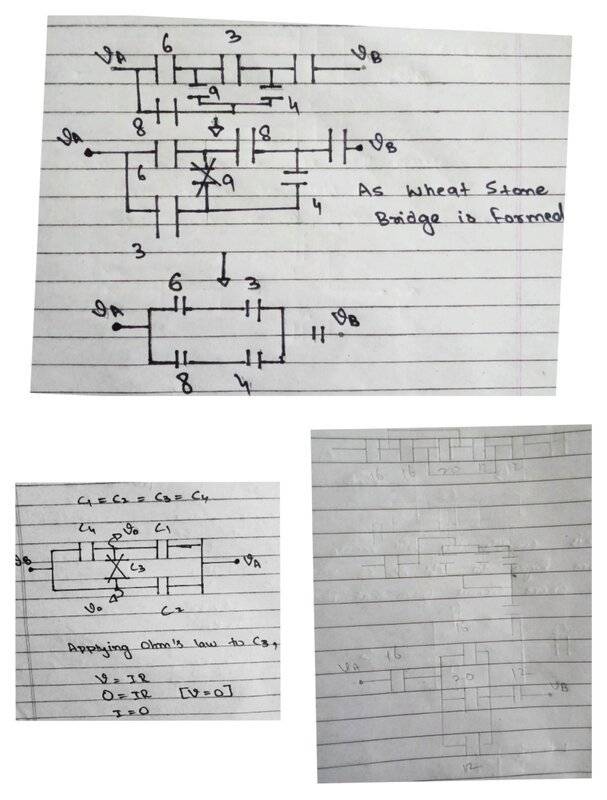 6 3
VA VB
9
4
8
VA 8 VB
6 9
As Wheat Stone
4
Bridge is formed
3
6 3
VA VB
8 4
C1 = C2 = C3 = C4
C4 V0 C1
VB C3 VA
V0 C2
Applying Ohm's law to C3,
V = IR
0 = IR [V=0]
I = 0
16 16 20 12 12
16
VA 16 20 12 VB
12